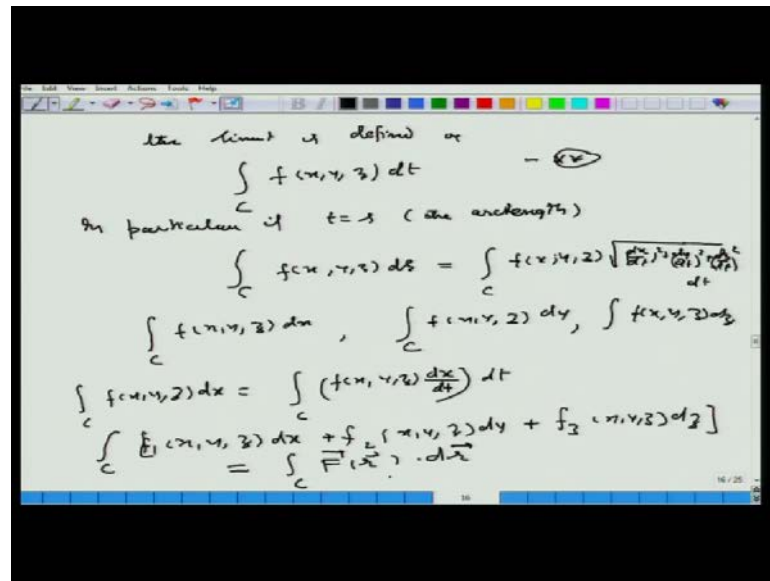 Edit View Insert Actions Tools Help
the limit is defined as
∫_C f(x,y,z) dt - (**)
In particular if t=s (the arclength)
∫_C f(x,y,z) ds = ∫_C f(x,y,z) √((dx/dt)²+(dy/dt)²+(dz/dt)²) dt
∫_C f(x,y,z) dx , ∫_C f(x,y,z) dy, ∫ f(x,y,z) dz
∫_C f(x,y,z) dx = ∫_C (f(x,y,z) dx/dt) dt
∫_C [f₁(x,y,z) dx + f₂(x,y,z) dy + f₃(x,y,z) dz]
= ∫_C F⃗(r⃗) · dr⃗
16 / 25
16